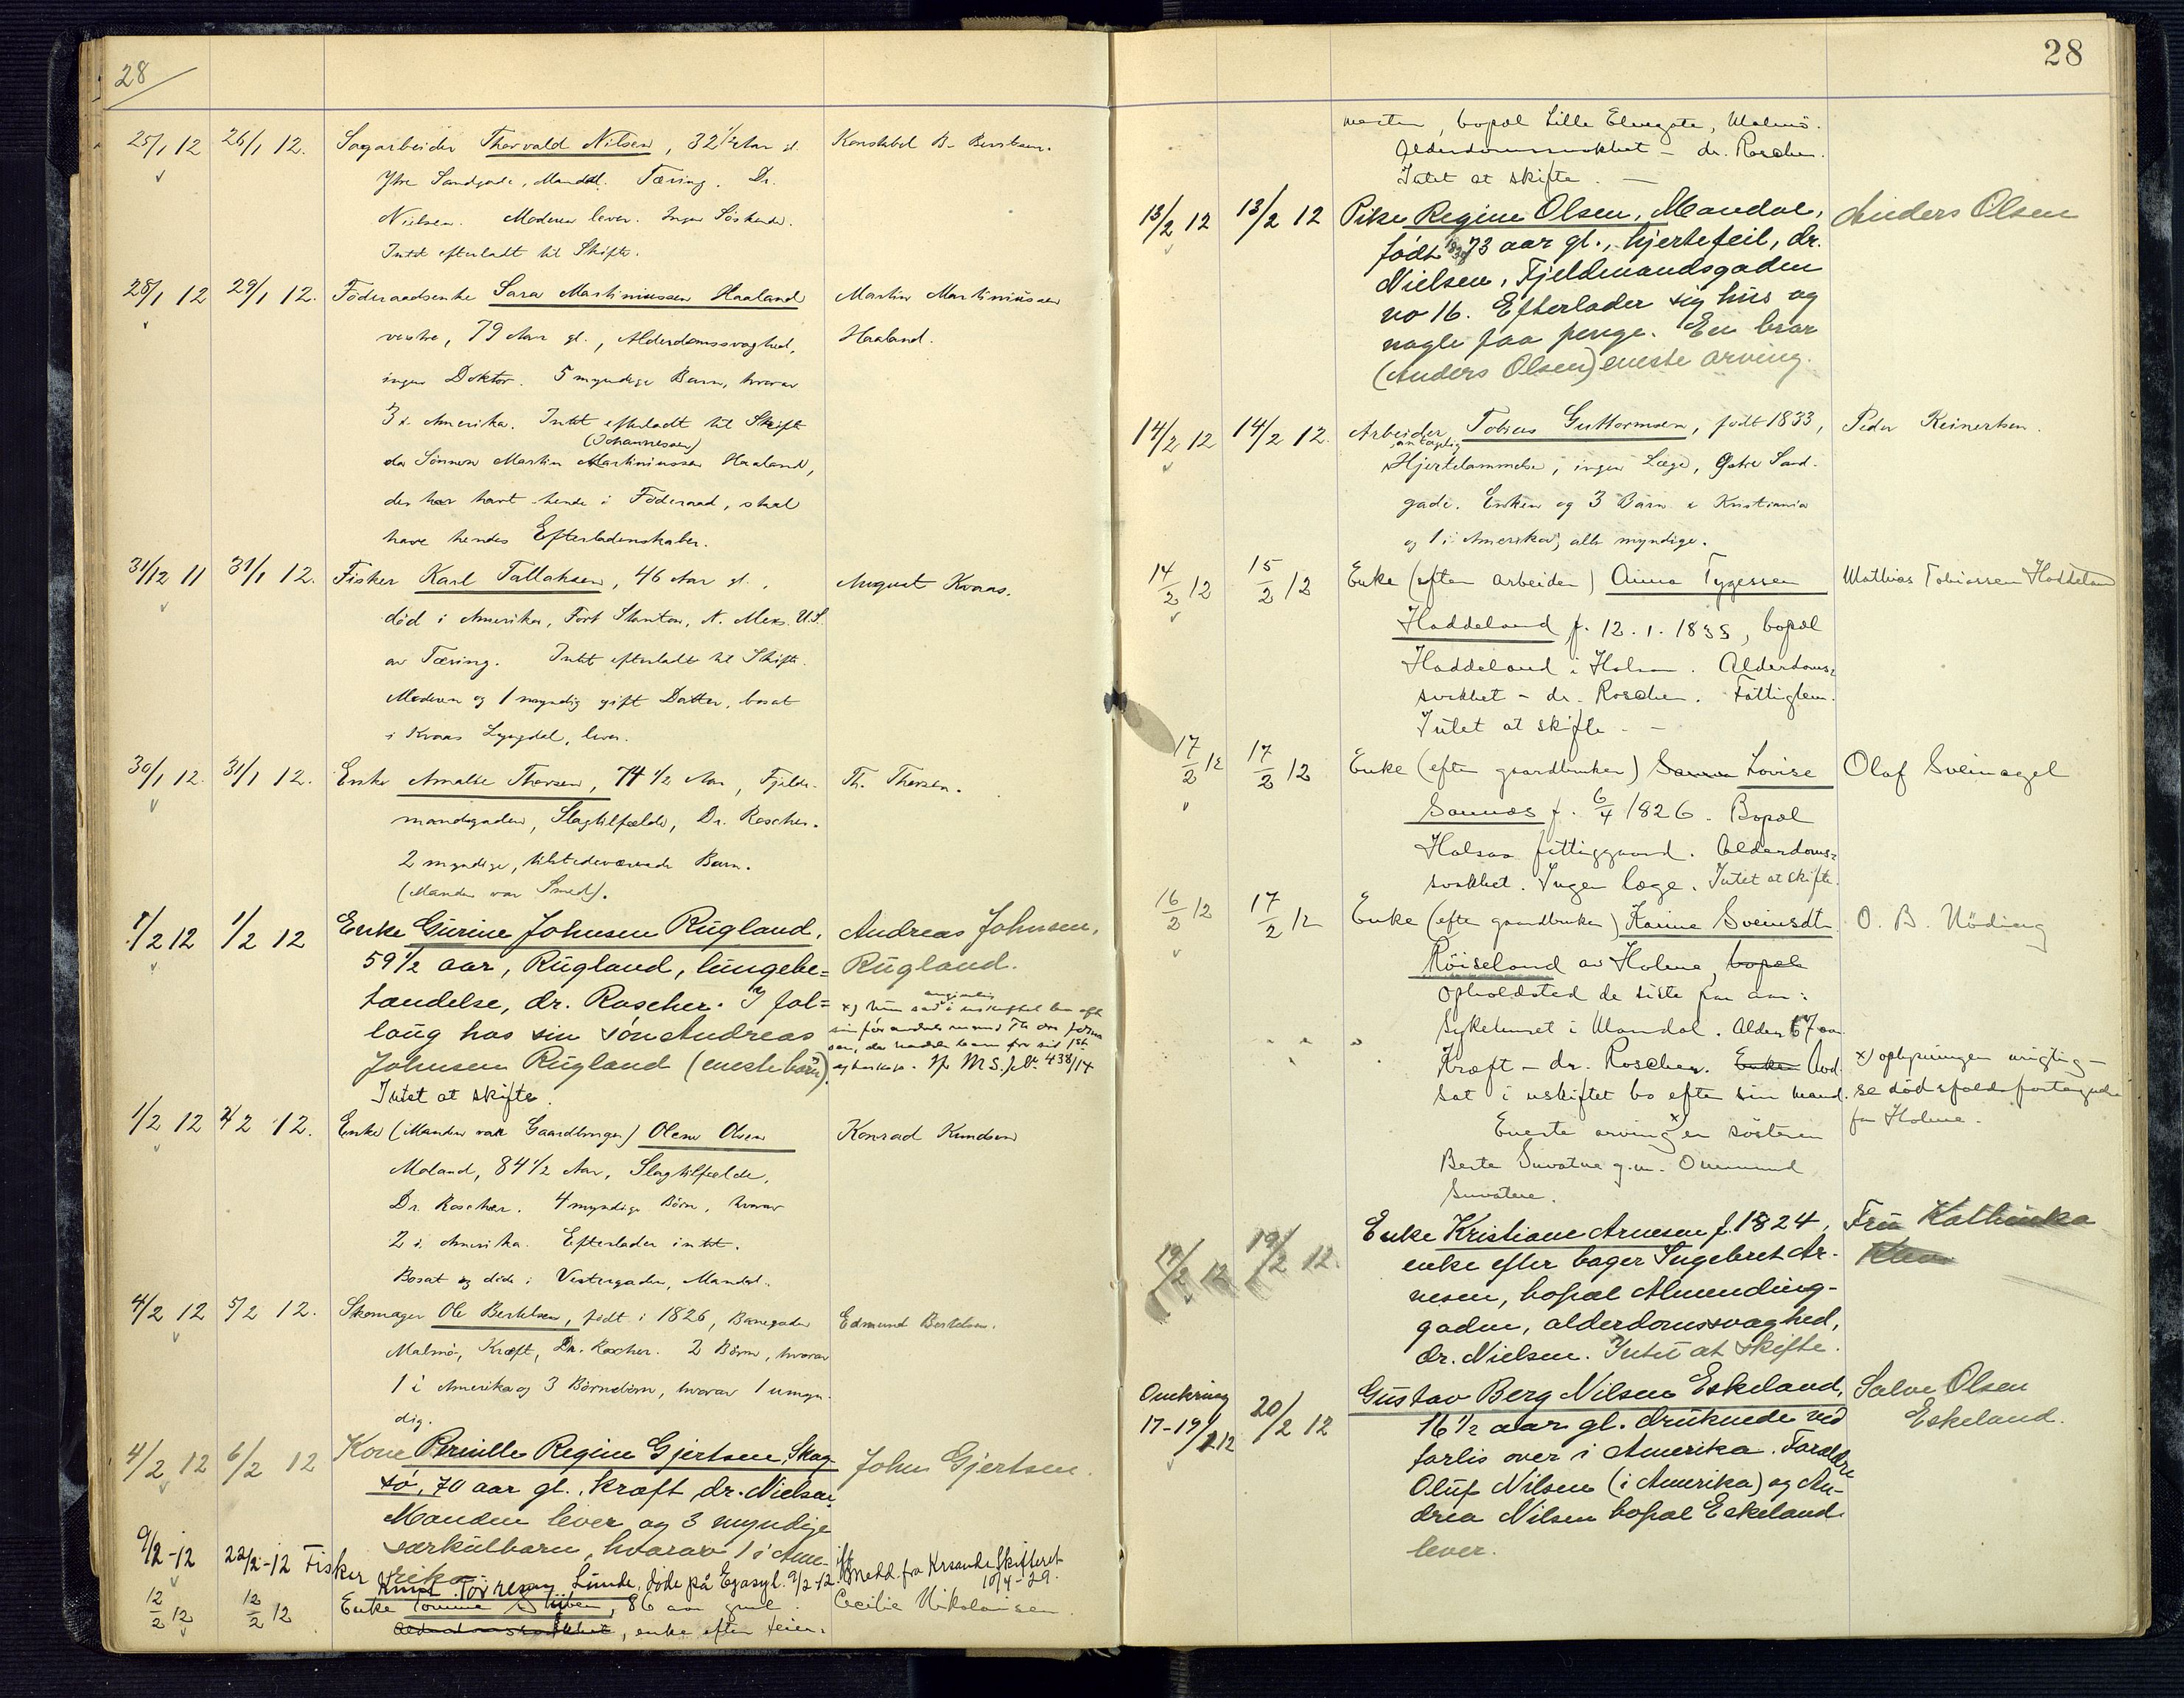 28
25/1 12 26/1 12. Sagarbeider Thorvald Nilsen, 32 1/2 Aar gl. Konstabel B. Berntsen.
Ytre Sandgade, Mandal. Tæring. Dr.
Nielsen. Moderen lever. Ingen Søskende.
Intet efterladt til Skifte.
28/1 12 29/1 12. Føderaadsenke Sara Martiniussen Haaland Martin Martiniussen
vestre, 79 Aar gl., Alderdomssvaghed, Haaland.
ingen Doktor. 5 myndige Barn, hvorav
3 i Amerika. Intet efterladt til Skifte
(Johannessen)
da Sønnen Martin Martiniussen Haaland,
der har havt hende i Føderaad, skal
have hendes Efterladenskaber.
31/12 11 31/1 12. Fisker Karl Tallaksen, 46 Aar gl., August Kvaas.
død i Amerika, Fort Stanton, N. Mex. U.S.
av Tæring. Intet efterladt til Skifte.
Moderen og 1 myndig gift Datter, bosat
i Kvaas Lyngdal, lever.
30/1 12. 31/1 12. Enke Amalie Thorsen, 74 1/2 Aar, Fjeld- Th. Thorsen.
mandsgaden, Slagtilfælde, Dr. Roscher.
2 myndige, tilstedeværende Barn.
(Manden var Smed).
1/2 12 1/2 12 Enke Gurine Johnsen Rugland, Andreas Johnsen,
59 1/2 aar, Rugland, lungebe= Rugland.
tændelse, dr. Roscher. I føl=
laug hos sin søn Andreas
Johnsen Rugland (eneste barn).
438/14
Intet at skifte.
1/2 12 2/2 12. Enke (Manden var Gaardbruger) Olene Olsen Konrad Knudsen
Moland, 84 1/2 Aar, Slagtilfælde,
Dr. Roscher. 4 myndige Børn, hvorav
2 i Amerika. Efterlader intet.
Bosat og døde i Vestergaden, Mandal.
4/2 12 5/2 12. Skomager Ole Bertelsen, født i 1826, Banegaden Edmund Bertelsen.
Malmø, Kræft, Dr. Roscher. 2 Børn, hvorav
1 i Amerika og 3 Børnebørn, hvorav 1 umyn-
dig.
4/2 12 6/2 12 Kone Pernille Regine Gjertsen, Skag- John Gjertsen.
sø, 70 aar gl., kræft, dr. Nielsen,
Manden lever og 3 myndige
særkulbarn, hvorav 1 i Ame-
rika.
9/2-12 22/2-12 Fisker Knut Torresen Lunde, døde på Egasyl. 9/2-12 iflg. medd. fra Krsands Skifteret
10/4-29.
12/2 12 12/2 12 Enke Tomine Stüben, 86 aar gml. Cecilie Nikolaisen.
Alderdomssvakhet, enke efter feier-
28
mester, bopæl Lille Elvegate, Malmø.
Alderdomssvakhet - dr. Roscher.
Intet at skifte. —
13/2 12 13/2 12 Pike Regine Olsen, Mandal, Anders Olsen
født 1838 73 aar gl., hjertefeil, dr.
Nielsen, Fjeldmandsgaden
no 16. Efterlader sig hus og
nogle faa penge. En bror
(Anders Olsen) eneste arving.
14/2 12 14/2 12. Arbeider Tobias Guttormsen, født 1833, Peder Reinertsen.
antagelig
Hjertelammelse, ingen Læge, Østre Sand-
gade. Enken og 3 Barn i Kristiania
og 1 i Amerika, alle myndige.
14/2 12 15/2 12 Enke (efter arbeider) Anna Tygessen Mathias Tobiassen Haddeland
Haddeland f. 12.1.1835, bopæl
Haddeland i Holum. Alderdoms=
svakhet - dr. Roscher. Fattiglem.
Intet at skifte. —
17/2 12 17/2 12 Enke (efter gaardbruker) Sanna Lovise Olaf Sveinagel
Sannæs f. 6/4 1826. Bopæl
Halsaa fattiggaard. Alderdoms=
svakhet. Ingen læge. Intet at skifte.
16/2 12 17/2 12 Enke (efter gaardbruker) Karine Sveinsdt. O. B. Nøding
Røiseland av Holme, bopæl
opholdssted de siste par aar:
Sykehuset i Mandal. Alder 67 aar.
Kræft - dr. Roscher. Enken Avd. x) oplysningen urigtig -
sat i uskiftet bo efter sin mand. se dødsfaldsfortegnelse
Eneste arving x) er søsteren fra Holme.
Berte Suvatne g.m. Ommund
Suvatne.
19/2 12 19/2 12. Enke Kristiane Arnesen f. 1824, Fru Kathinka
enke efter bager Ingebret Ar-
nesen, bopæl Almending-
gaden, alderdomssvaghed,
dr. Nielsen. Intet at skifte.
Omkring
17-19/1 12 20/2 12 Gustav Berg Nilsen Eskeland, Salve Olsen
16 1/2 aar gl. druknede ved Eskeland.
forlis over i Amerika. Forældre
Oluf Nilsen (i Amerika) og An-
drea Nilsen bopæl Eskeland
lever.